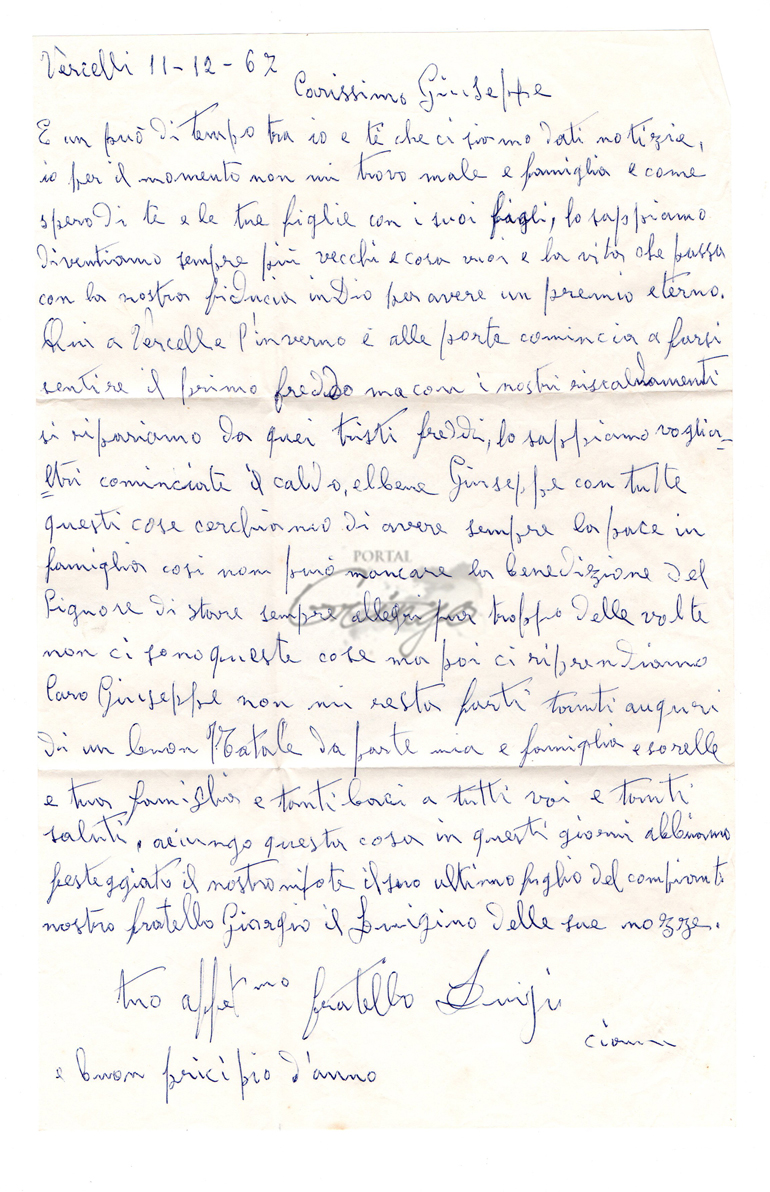 Vercelli 11-12-67
Carissimo Giuseppe
E un può di tempo tra io e tè che ci siamo dati notizie,
io per il momento non mi trovo male e famiglia e come
spero di tè e le tue figlie con i suoi figli, lo sappiamo
diventiamo sempre più vecchi e cosa vuoi e la vita che passa
con la nostra fiducia in Dio per avere un premio eterno.
Qui a Vercelle l'inverno è alle porte comincia a farsi
sentire il primo freddo ma con i nostri riscaldamenti
si ripariamo da quei tristi freddi, lo sappiamo voglia-
ltri cominciate il caldo, ebbene Giuseppe con tutte
questi cose cerchiamo di avere sempre la pace in
famiglia cosi non può mancare la benedizione del
Signore di stare sempre allegri pur troppo delle volte
non ci sono queste cose ma poi ci riprendiamo
Caro Giuseppe non mi resta farti tanti auguri
di un buon Natale da parte mia e famiglia e sorelle
e tua famiglia e tanti baci a tutti voi e tanti
saluti, aciungo questa cosa in questi giorni abbiamo
festeggiato il nostro nipote il suo ultimo figlio del compianti
nostro fratello Giorgio il Luigino delle sue nozze.
tuo affet mo fratello Luigi
ciau
e buon pricipio d'anno
PORTAL